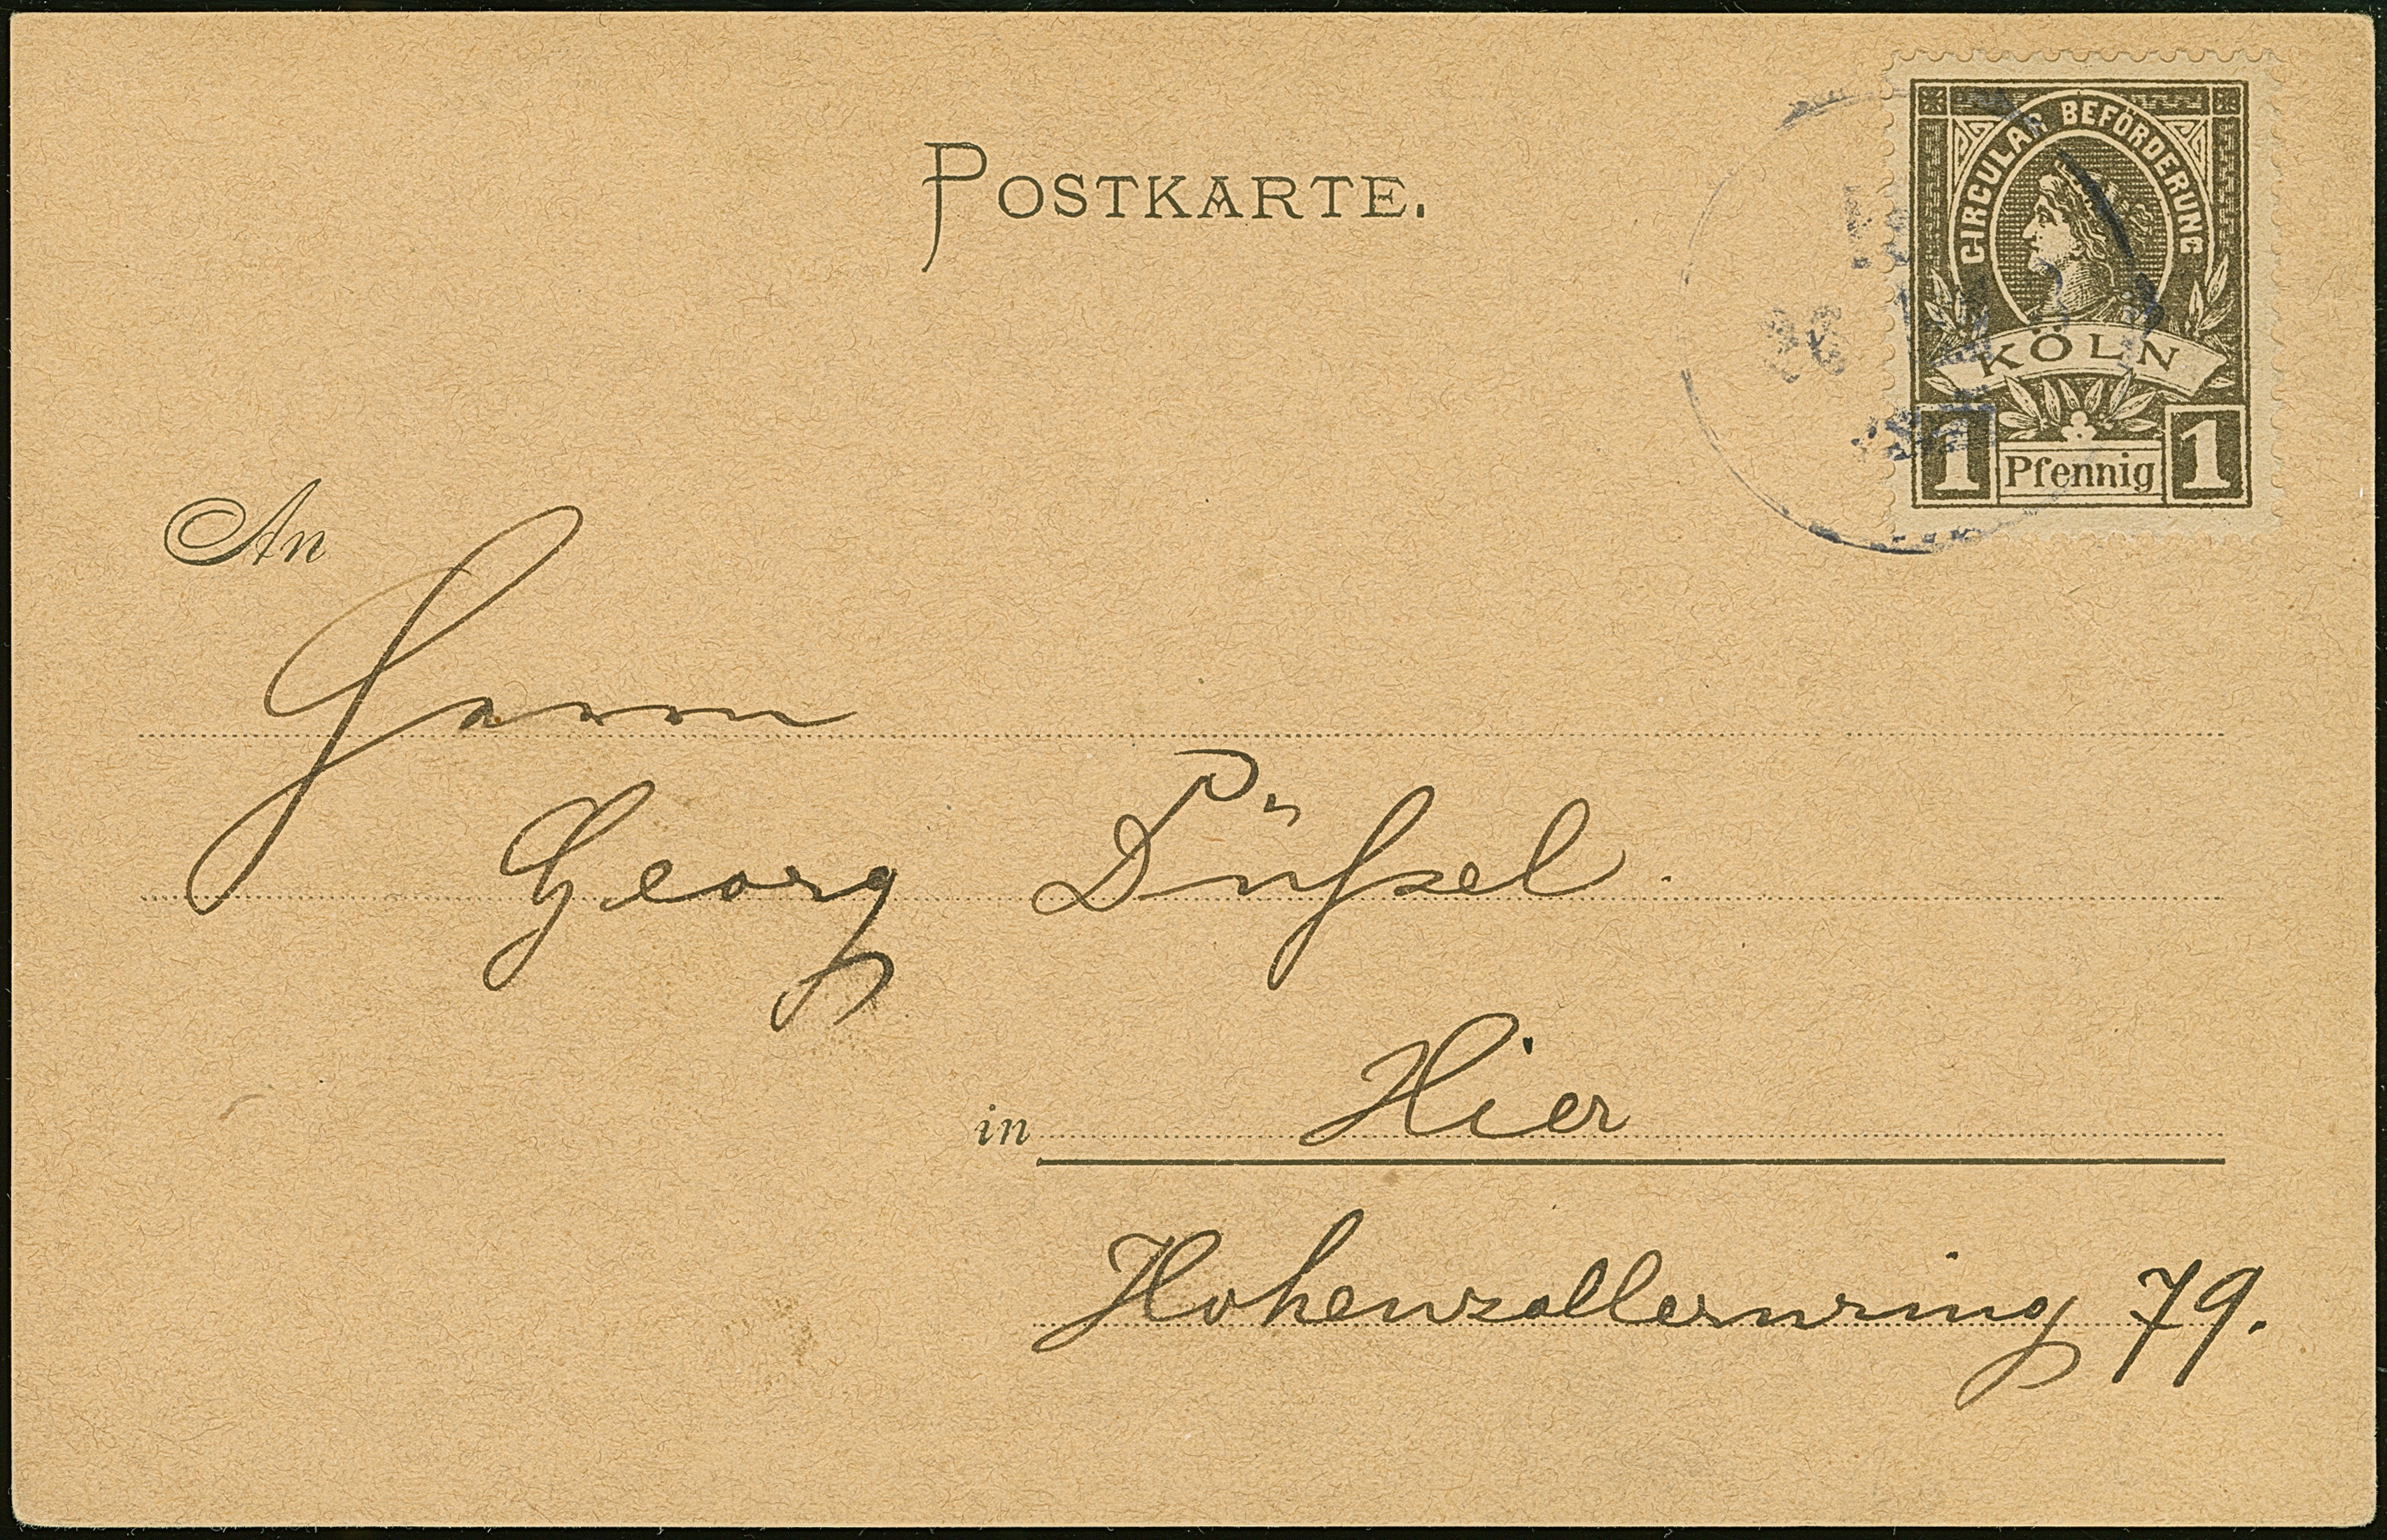 POSTKARTE.
CIRCULAR BEFÖRDERUNG
KÖLN
1 Pfennig 1
An
Herrn
Georg Düßel.
in Hier
Hohenzollernring 79.